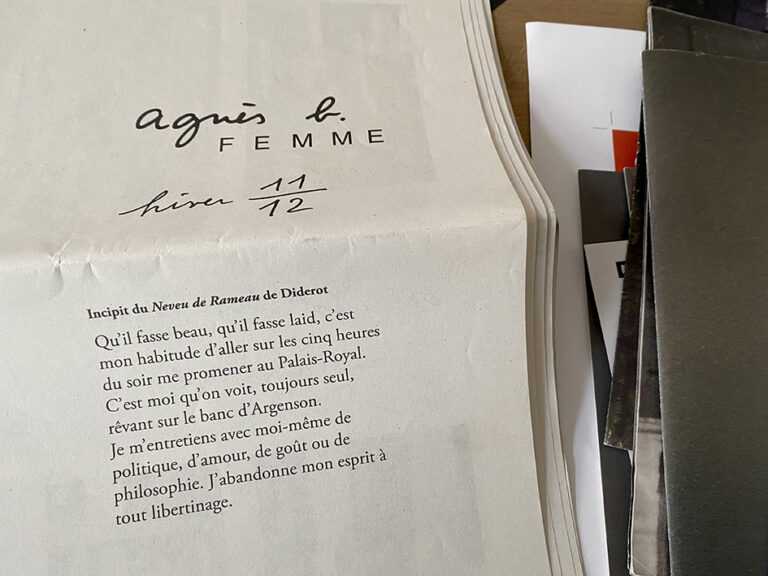 agnès b.
FEMME
hiver 11/12
Incipit du Neveu de Rameau de Diderot
Qu'il fasse beau, qu'il fasse laid, c'est
mon habitude d'aller sur les cinq heures
du soir me promener au Palais-Royal.
C'est moi qu'on voit, toujours seul,
rêvant sur le banc d'Argenson.
Je m'entretiens avec moi-même de
politique, d'amour, de goût ou de
philosophie. J'abandonne mon esprit à
tout libertinage.